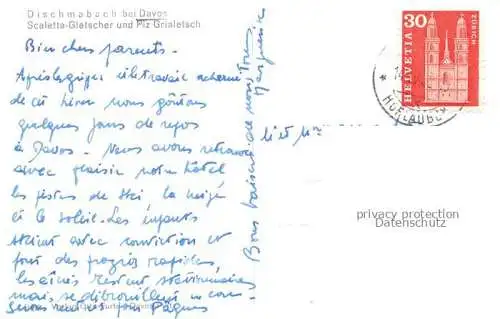 Dischmabach bei Davos
Scaletta-Gletscher und Piz Grialetsch
Bien chers parents.
Après les grippes et le travail acharné
de cet hiver nous goûtons
quelques jours de repos
à Davos. Nous avons retrouvé
avec plaisir notre hôtel
les pistes de ski, la neige
et le soleil. Les enfants
skient avec conviction et
font des progrès rapides,
les aînés restent stationnaires
mais se débrouillent
Bons baisers de nous tous
Marguerite
HELVETIA
30
ZÜRICH
privacy protection
Datenschutz